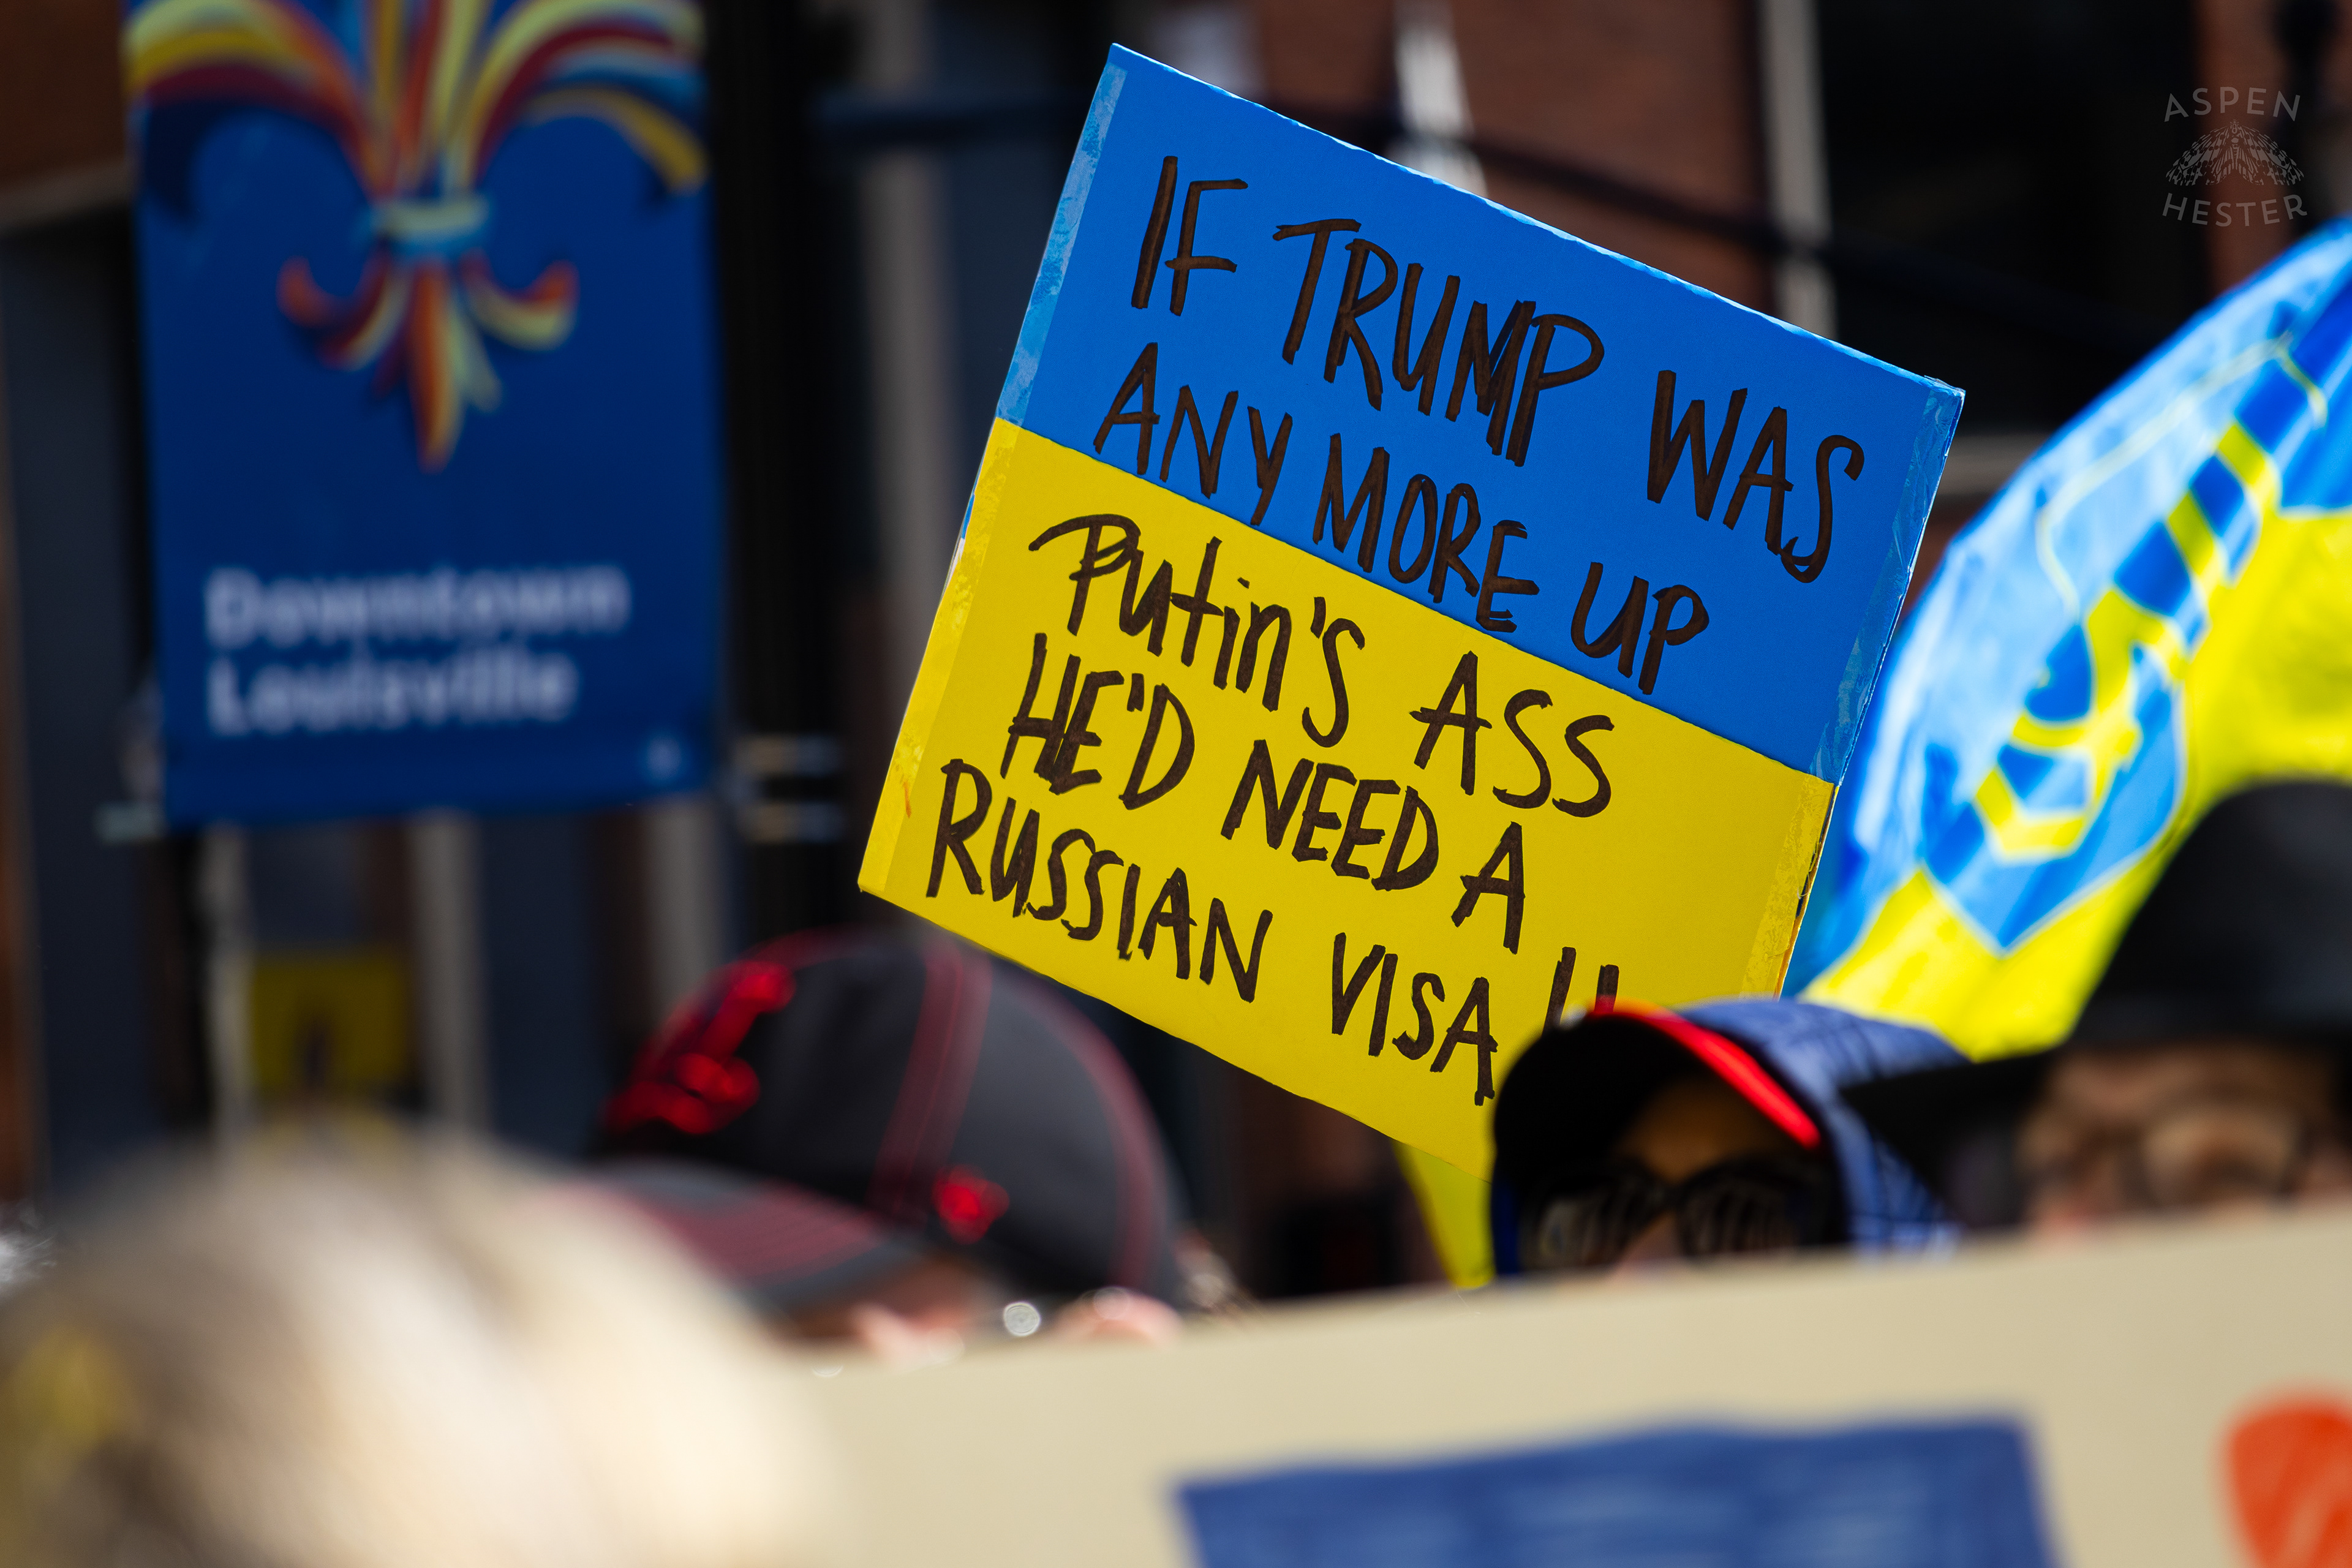 Downtown
Louisville
IF TRUMP WAS
ANY MORE UP
Putin's ASS
HE'D NEED A
RUSSIAN VISA !!
ASPEN
HESTER